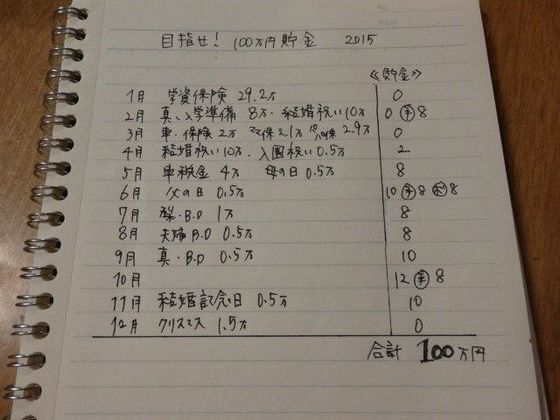 目指せ! 100万円貯金 2015
《貯金》
1月 学資保険 29.2万 0
2月 真、入学準備 8万・結婚祝い10万 0 ㊍8
3月 車・保険 2万 2.1万 2.9万 0
4月 結婚祝い10万、入園祝い0.5万 2
5月 車税金 4万 母の日 0.5万 8
6月 父の日 0.5万 10 8 8
7月 B.D 1万 8
8月 夫婦B.D 0.5万 8
9月 真・B.D 0.5万 10
10月 12 8
11月 結婚記念日 0.5万 10
12月 クリスマス 1.5万 0
合計 100万円